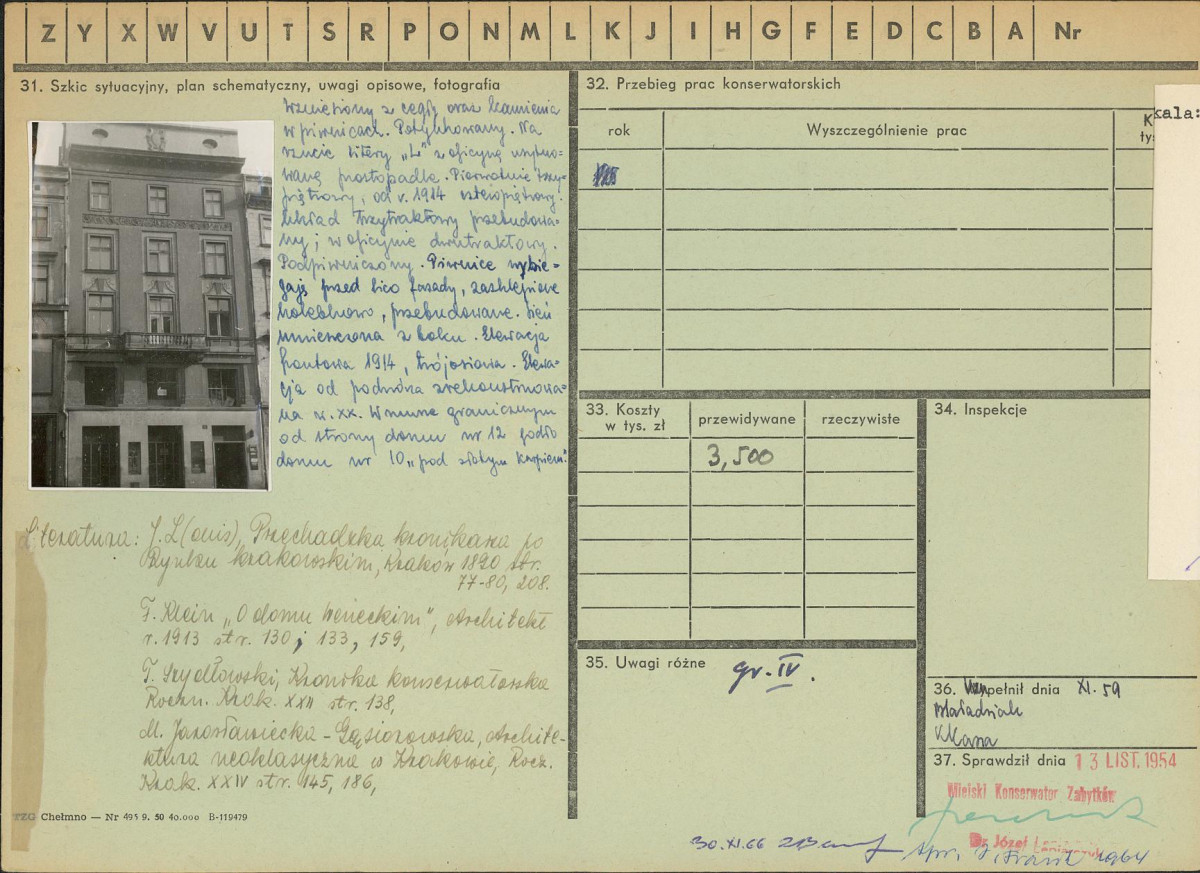 Z Y X W V U T S R P O N M L K J I H G F E D C B A Nr
31. Szkic sytuacyjny, plan schematyczny, uwagi opisowe, fotografia
Wzniesiony z cegły oraz kamienia
w piwnicach. Potynkowany. Na
rzucie litery „L” z oficyną usytuo-
waną prostopadle. Pierwotnie trzy-
piętrowy, od r. 1914 czteropiętrowy.
Układ trzytraktowy przebudowa-
ny; w oficynie dwutraktowy.
Podpiwniczony. Piwnice wybie-
gają przed lico fasady, zasklepione
kolebkowo, przebudowane. Sień
umieszczona z boku. Elewacja
frontowa 1914, trójosiowa. Elewa-
cja od podwórza zrekonstruowa-
na w. XX. W murze granicznym
od strony domu nr 12 godło
domu nr 10 „pod złotym karpiem”.
Literatura: J. L(ouis), Przechadzka kronikarza po
Rynku krakowskim, Kraków 1890 str.
77-80, 208.
F. Klein „O domu weneckim”, Architekt
r. 1913 str. 130; 133, 159,
T. Szydłowski, Kronika konserwatorska
Roczn. Krak. XXII str. 138,
M. Jarosławiecka-Gąsiorowska, Archite-
ktura neoklasyczna w Krakowie, Rocz.
Krak. XXIV str. 145, 186,
TZG Chełmno — Nr 495 9. 50 40.000 B-119479
32. Przebieg prac konserwatorskich
rok Wyszczególnienie prac K
ty
kala:
33. Koszty
w tys. zł
przewidywane rzeczywiste
3,500
34. Inspekcje
35. Uwagi różne gr. IV.
36. Wypełnił dnia XI. 59
37. Sprawdził dnia 13 LIST. 1954
Miejski Konserwator Zabytków
Dr Józef
30.XI.66
1964